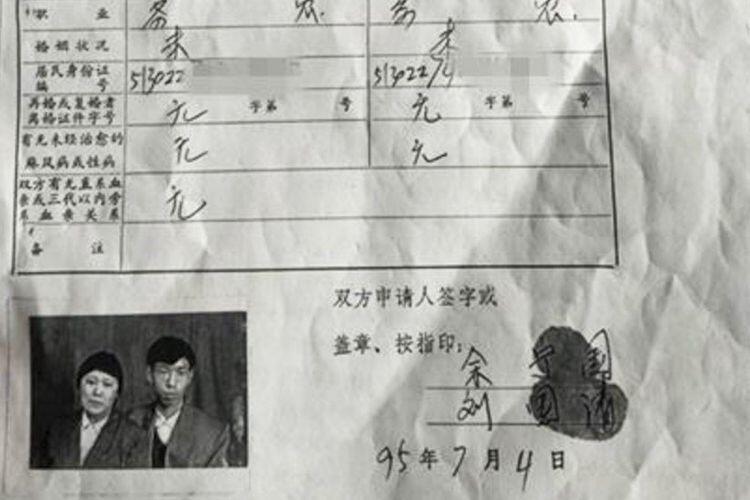 职 业 务 农 务 农.
婚姻状况 未 未
居民身份证
编 号 513022 513022
再婚或复婚者
离婚证件字号 无 字第 号 无 字第 号
有无未经治愈的
麻风病或性病 无 无
双方有无直系血
亲或三代以内旁
系血亲关系 无
备 注
双方申请人签字或
盖章、按指印:
余 国
刘 国 清
95年7月4日